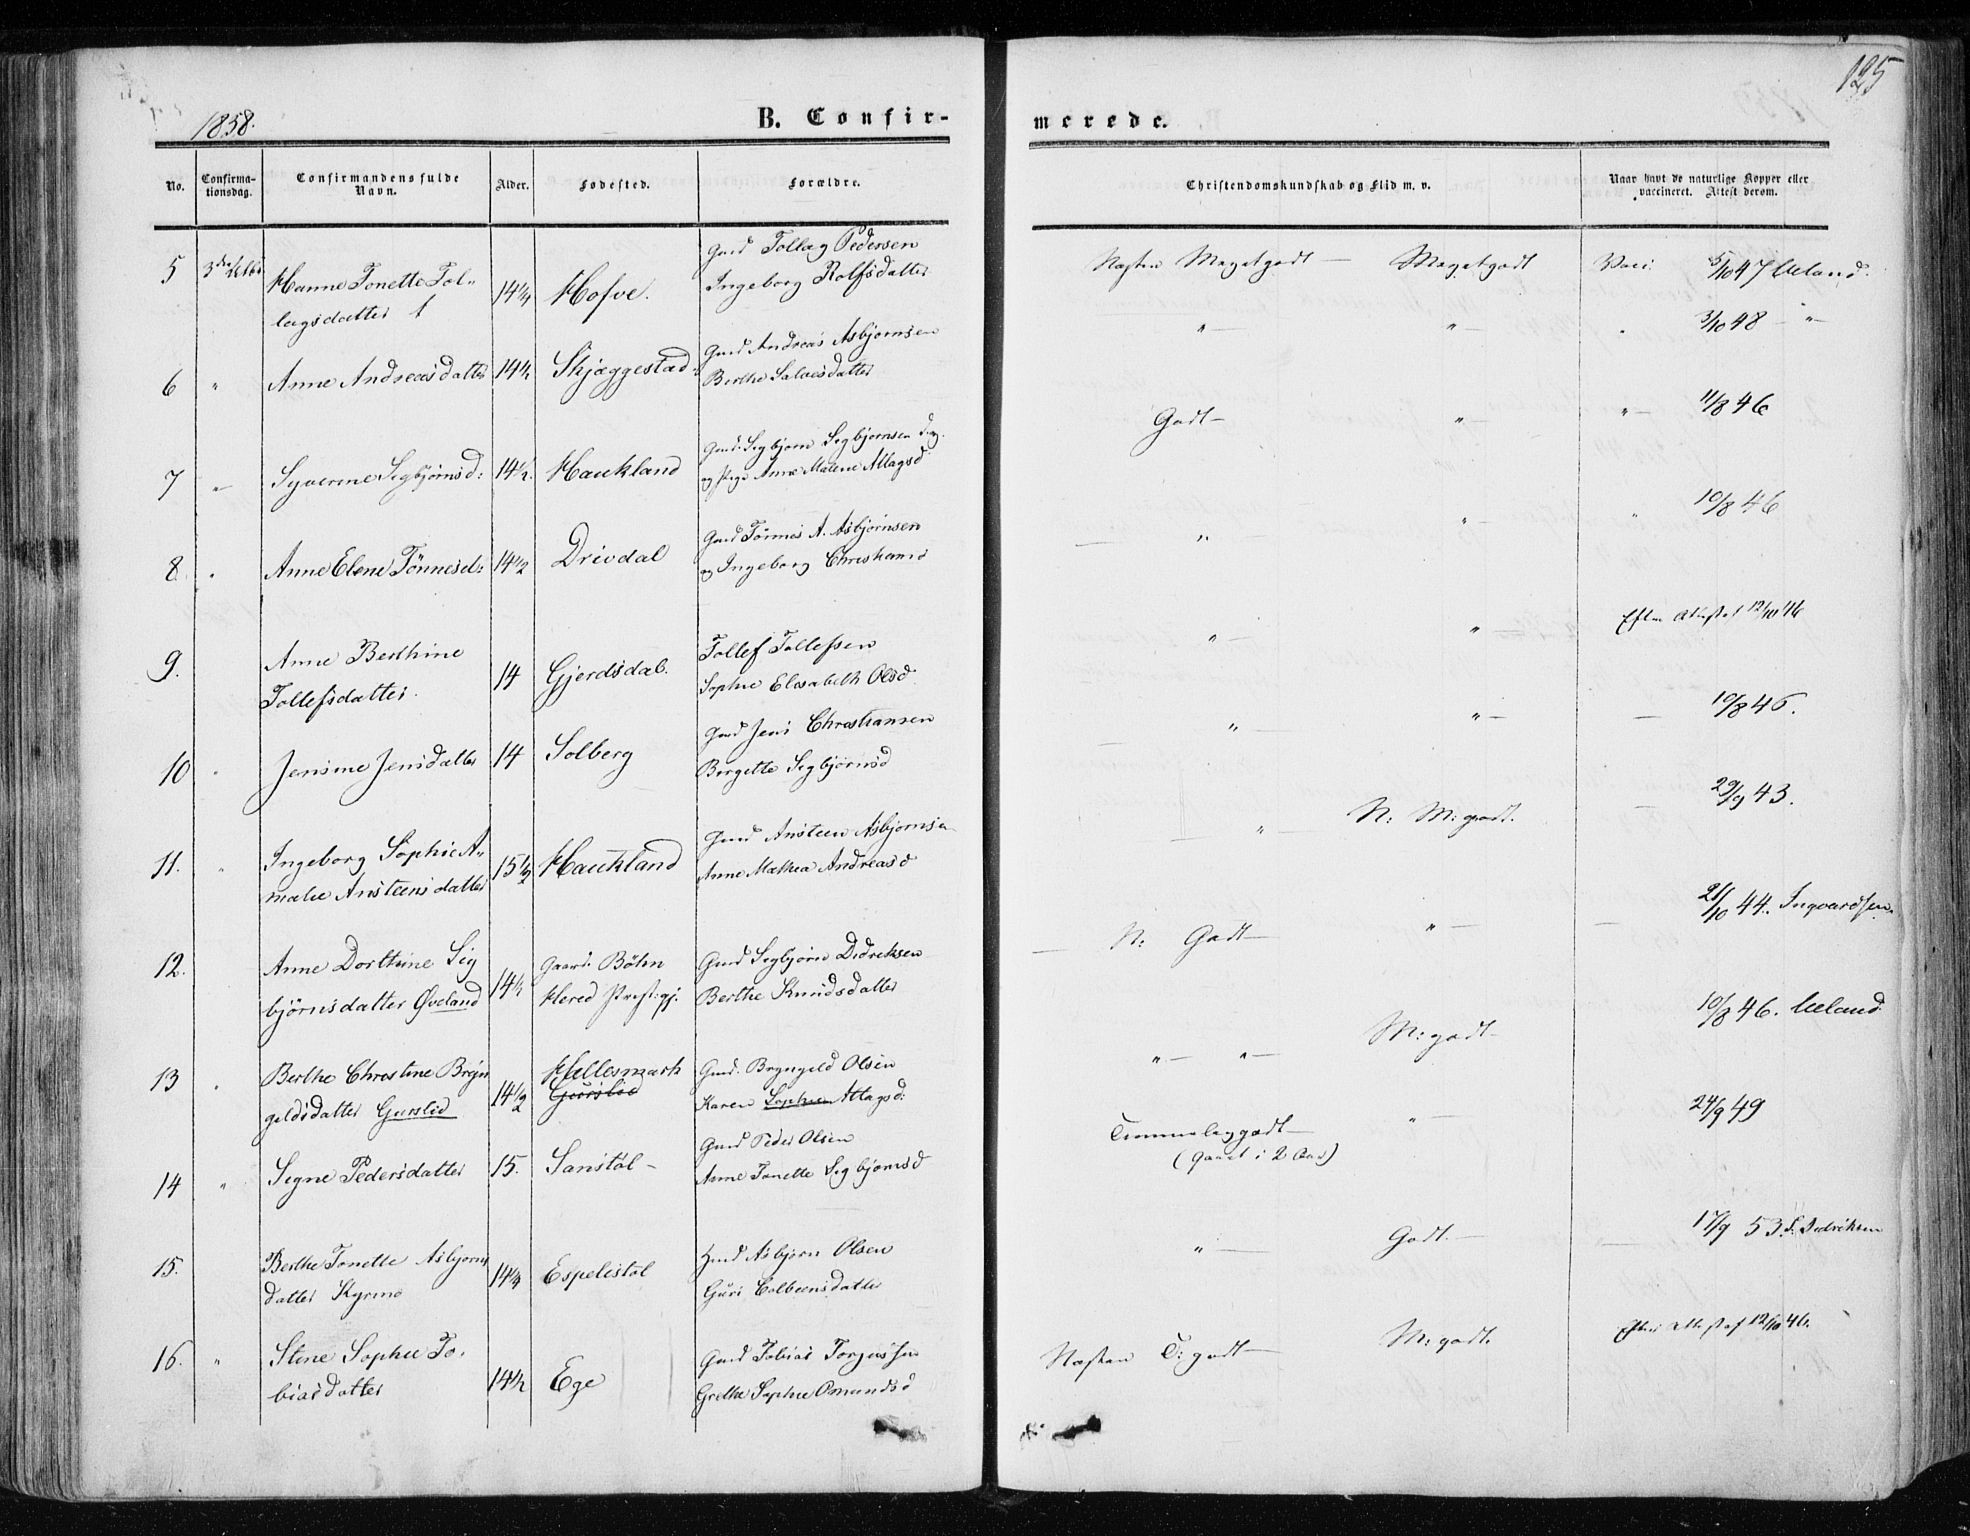 125
1858.
B. Confir-
merede.
No.
Confirma-
tionsdag.
Confirmandens fulde
Navn.
Alder.
Fødested.
Forældre.
Christendomskundskab og Flid m. v.
Naar havt de naturlige Kopper eller
vaccineret. Attest derom.
5 Hanne Tonette Tol-
lagsdatter 14 1/4 Hofve.
Gmd Tollag Pedersen
Ingeborg Rolfsdatter
Næsten Megetgodt — Megetgodt Vacc. 5/10 47 Ueland.
6 " Anne Andreasdatter 14 1/2 Skjæggestad
Gmd Andreas Asbjørnsen
Berthe Salvesdatter
" — " — " 3/10 48 — " —
7 " Syverine Segbjørnsd: 14 1/2 Haukland
Gmd. Segbjørn Segbjørnsen
og Anne Malene Atlagsd
Godt — " — " — 11/8 46
8 " Anne Elene Tønnesd: 14 1/2 Drivdal
Gmd Tønnes A. Asbjørnsen
og Ingeborg Christiansd
" — " — " 10/8 46
9. Anne Berthine
Tollefsdatter. 14 Gjerdsdal.
Tollef Tollefsen
Sophie Elisabeth Olsd.
" — " — Efter Attest af 12/10 46
10 " Jensine Jensdatter 14 Solberg
Gmd Jens Christiansen
Bergette Segbjørnsd
" — " — 10/8 45.
11. " Ingeborg Sophie A-
malie Ansteensdatter 15 1/2 Haukland
Gmd Ansteen Asbjørnsen
Anne Mathea Andreasd
" — N: M: godt. — 29/9 43.
12. Anne Dorthine Sig
bjørnsdatter Øveland 14 1/2
Gaard. Bøhn
Hered Præstegj.
Gmd Segbjørn Didreksen
Berthe Knudsdatter
N: Godt — " — 21/10 44. Ingvardsen.
13 " Berthe Christine Bryn
geldsdatter Gurslid 14 1/2
Hellesmark
Gurslid
Gmd. Bryngeld Olsen
Karen Sophie Atlagsd:
" — " — M: godt — 10/8 46. Ueland.
14 " Segne Pedersdatter 15. Sanstøl —
Gmd Peder Olsen
Anne Tonette Segbjørnsd
Temmelig godt —
(Gaaet i 2 Aar)
" — 24/9 49
15. Berthe Tonette Asbjørns
datter 14 1/4 Espelistøl
Asbjørn Olsen
Guri Colbeensdatter
" — Godt. — 17/9 53. Dedreksen
16. " Stine Sophie To-
biasdatter 14 1/2 Ege
Gmd Tobias Torgersen
Grethe Sophie Omundsd
Næsten T: godt — M: godt. Efter Attest af 12/10 46.